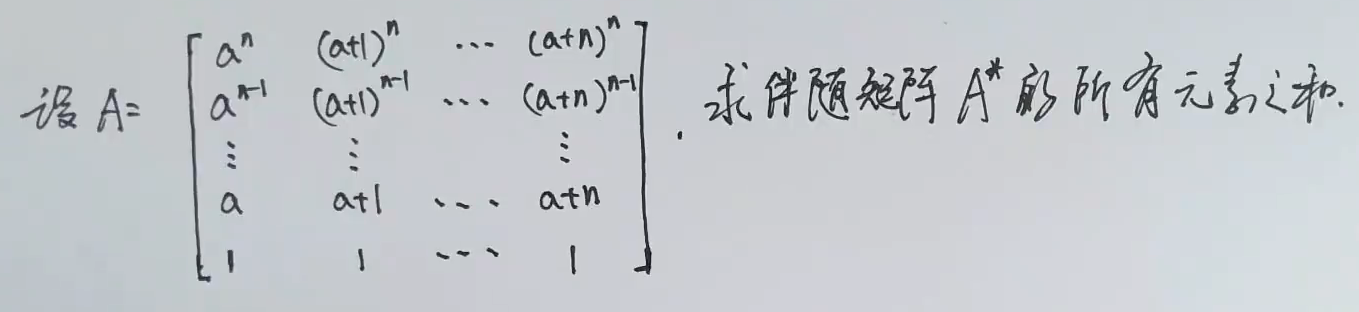 设 A= [ aⁿ (a+1)ⁿ ⋯ (a+n)ⁿ
aⁿ⁻¹ (a+1)ⁿ⁻¹ ⋯ (a+n)ⁿ⁻¹
⋮ ⋮ ⋮
a a+1 ⋯ a+n
1 1 ⋯ 1 ] . 求伴随矩阵 A* 的所有元素之和.